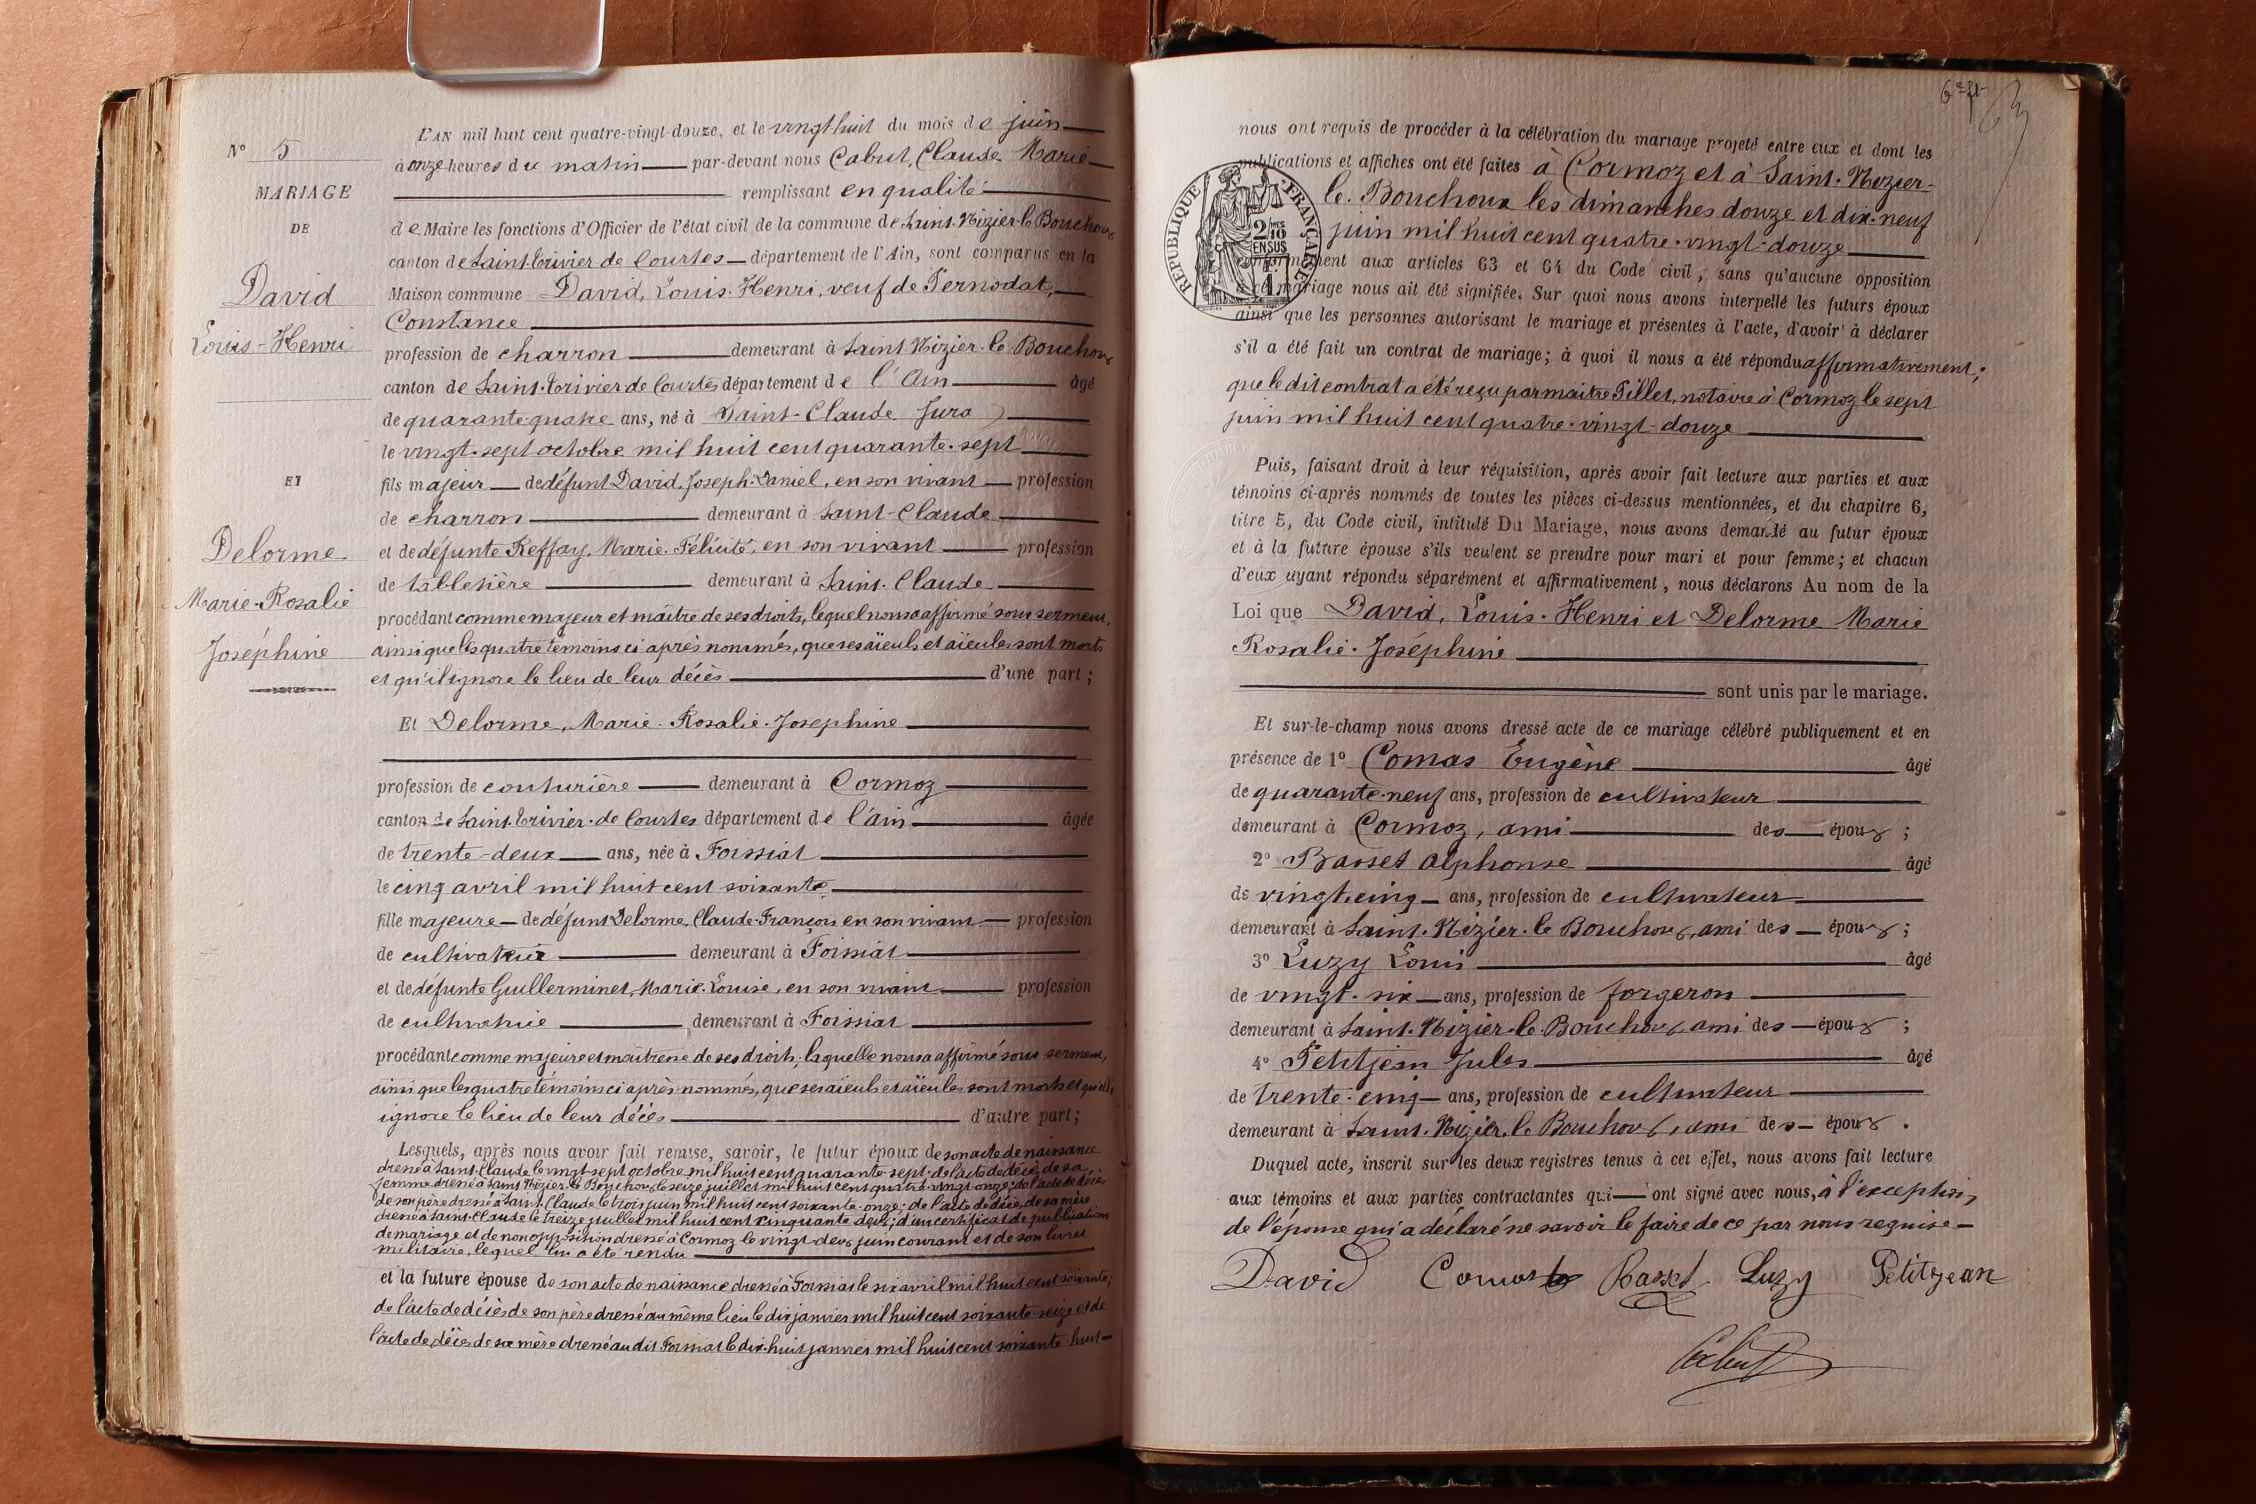 N° 5
MARIAGE
DE
David
Louis-Henri
ET
Delorme
Marie-Rosalie
Joséphine
L'AN mil huit cent quatre-vingt-douze, et le vingt huit du mois de juin
à onze heures du matin par-devant nous Cabut, Claude Marie
remplissant en qualité
de Maire les fonctions d'Officier de l'état civil de la commune de Saint-Nizier-le Bouchoux
canton de Saint-Trivier de Courtes département de l'Ain, sont comparus en la
Maison commune David, Louis-Henri, veuf de Pernodat,
Constance
profession de charron demeurant à Saint Nizier-le Bouchoux
canton de Saint-Trivier de Courtes département de l'Ain âgé
de quarante-quatre ans, né à Saint-Claude Jura)
le vingt-sept octobre mil huit cent quarante-sept
fils majeur de défunt David, Joseph-Daniel, en son vivant profession
de charron demeurant à Saint-Claude
et de défunte Reffay, Marie-Félicité, en son vivant profession
de tabletière demeurant à Saint-Claude
procédant comme majeur et maître de ses droits, lequel nous a affirmé sous serment,
ainsi que les quatre témoins ci après nommés, que ses aïeuls et aïeules sont morts
et qu'il ignore le lieu de leur décès d'une part;
Et Delorme, Marie-Rosalie-Josephine
profession de couturière demeurant à Cormoz
canton de Saint-Trivier-de Courtes département de l'ain âgée
de trente-deux ans, née à Foissiat
le cinq avril mil huit cent soixante
fille majeure de défunt Delorme, Claude-François en son vivant profession
de cultivateur demeurant à Foissiat
et de défunte Guillerminet, Marie-Louise, en son vivant profession
de cultivatrice demeurant à Foissiat
procédant comme majeure et maîtresse de ses droits, laquelle nous a affirmé sous serment,
ainsi que les quatre témoins ci après nommés, que ses aïeuls et aïeules sont morts et qu'elle
ignore le lieu de leur décès d'autre part;
Lesquels, après nous avoir fait remise, savoir, le futur époux de son acte de naissance
dressé à Saint-Claude le vingt-sept octobre mil huit cent quarante-sept; de l'acte de décès de sa
femme dressé à Saint Nizier-le Bouchoux le seize juillet mil huit cent quatre-vingt-onze; de l'acte de décès
de son père dressé à Saint-Claude le trois juin mil huit cent soixante-onze; de l'acte de décès de sa mère
dressé à Saint-Claude le treize juillet mil huit cent cinquante deux; d'un certificat de publication
de mariage et de non opposition dressé à Cormoz le vingt-deux juin courant et de son livret
militaire, lequel lui a été rendu
et la future épouse de son acte de naissance dressé à Foissiat le six avril mil huit cent soixante;
de l'acte de décès de son père dressé au même lieu le dix janvier mil huit cent soixante-seize et de
l'acte de décès de sa mère dressé au dit Foissiat le dix-huit janvier mil huit cent soixante-huit
63
nous ont requis de procéder à la célébration du mariage projeté entre eux et dont les
publications et affiches ont été faites à Cormoz et à Saint-Nizier-
le-Bouchoux les dimanches douze et dix-neuf
juin mil huit cent quatre-vingt-douze
RÉPUBLIQUE FRANÇAISE
2/10 EN SUS
conformément aux articles 63 et 64 du Code civil, sans qu'aucune opposition
à ce mariage nous ait été signifiée. Sur quoi nous avons interpellé les futurs époux
ainsi que les personnes autorisant le mariage et présentes à l'acte, d'avoir à déclarer
s'il a été fait un contrat de mariage; à quoi il nous a été répondu affirmativement;
que le dit contrat a été reçu par maître Pillet, notaire à Cormoz le sept
juin mil huit cent quatre-vingt-douze
Puis, faisant droit à leur réquisition, après avoir fait lecture aux parties et aux
témoins ci-après nommés de toutes les pièces ci-dessus mentionnées, et du chapitre 6,
titre 5, du Code civil, intitulé Du Mariage, nous avons demandé au futur époux
et à la future épouse s'ils veulent se prendre pour mari et pour femme; et chacun
d'eux ayant répondu séparément et affirmativement, nous déclarons Au nom de la
Loi que David, Louis-Henri et Delorme Marie
Rosalie-Joséphine
sont unis par le mariage.
Et sur-le-champ nous avons dressé acte de ce mariage célébré publiquement et en
présence de 1° Comas Eugène âgé
de quarante-neuf ans, profession de cultivateur
demeurant à Cormoz, ami des époux;
2° Basset Alphonse âgé
de vingt-cinq ans, profession de cultivateur
demeurant à Saint-Nizier-le Bouchoux, ami des époux;
3° Luzy Louis âgé
de vingt-six ans, profession de forgeron
demeurant à Saint-Nizier-le-Bouchoux, ami des époux;
4° Petitjean Jules âgé
de trente-cinq ans, profession de cultivateur
demeurant à Saint-Nizier, le Bouchoux, ami des époux.
Duquel acte, inscrit sur les deux registres tenus à cet effet, nous avons fait lecture
aux témoins et aux parties contractantes qui ont signé avec nous, à l'exception,
de l'épouse qui a déclaré ne savoir le faire de ce par nous requise
David Comas Basset Luzy Petitjean
Cabut